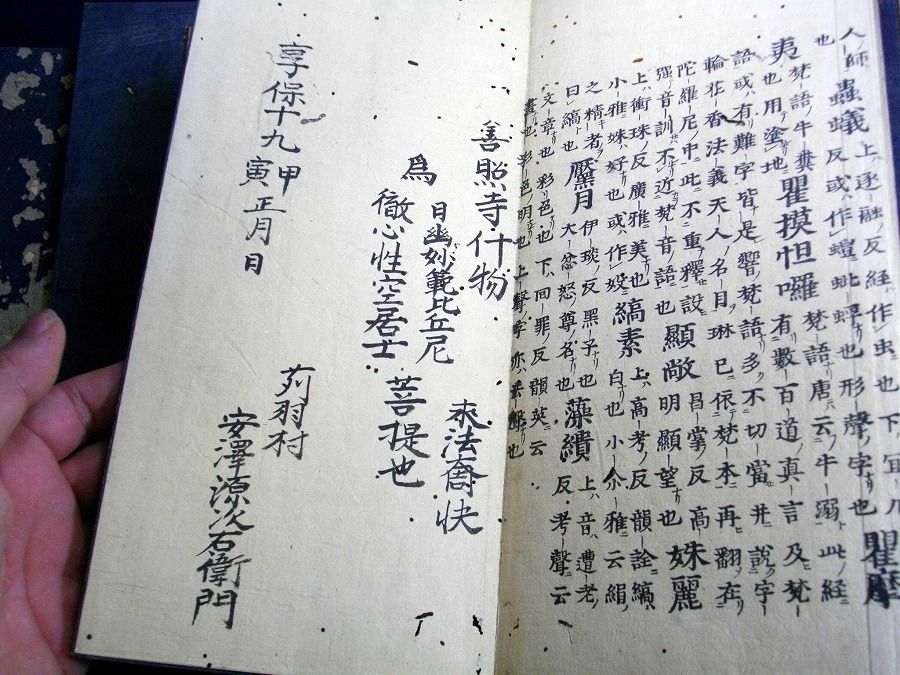 人師也 蟲蟻 上逐融反經作虫也下冝几反或作螘蚍蜉也形聲字也 瞿摩
夷 梵語牛糞也用塗地 瞿摸怛囉 梵語唐云牛溺此經有數百道真言及梵
語或有難字皆是響梵語多不切當并說字輪花香法義天人名目琳已依梵本再翻在
陀羅尼中此不重釋設强音訓不近梵音語也 顯敞 昌掌反高明顯望也 姝麗
上衝珠反廣雅美也小雅姝好也或作 縞素 上高考反韻詮縞白也小尒雅云絹
之精者曰縞也 黶月 伊琰反黑子也大忿怒尊名也 藻繢 上音遭老反考聲云
文章也彩色也下囘罪反韻英云畫也彩色明也上聲字亦去聲也
善照寺什物
末法裔快
日幽妙範比丘尼
為 菩提也
徹心性空居士
享保十九甲寅正月日
苅羽村
安澤源次右衛門